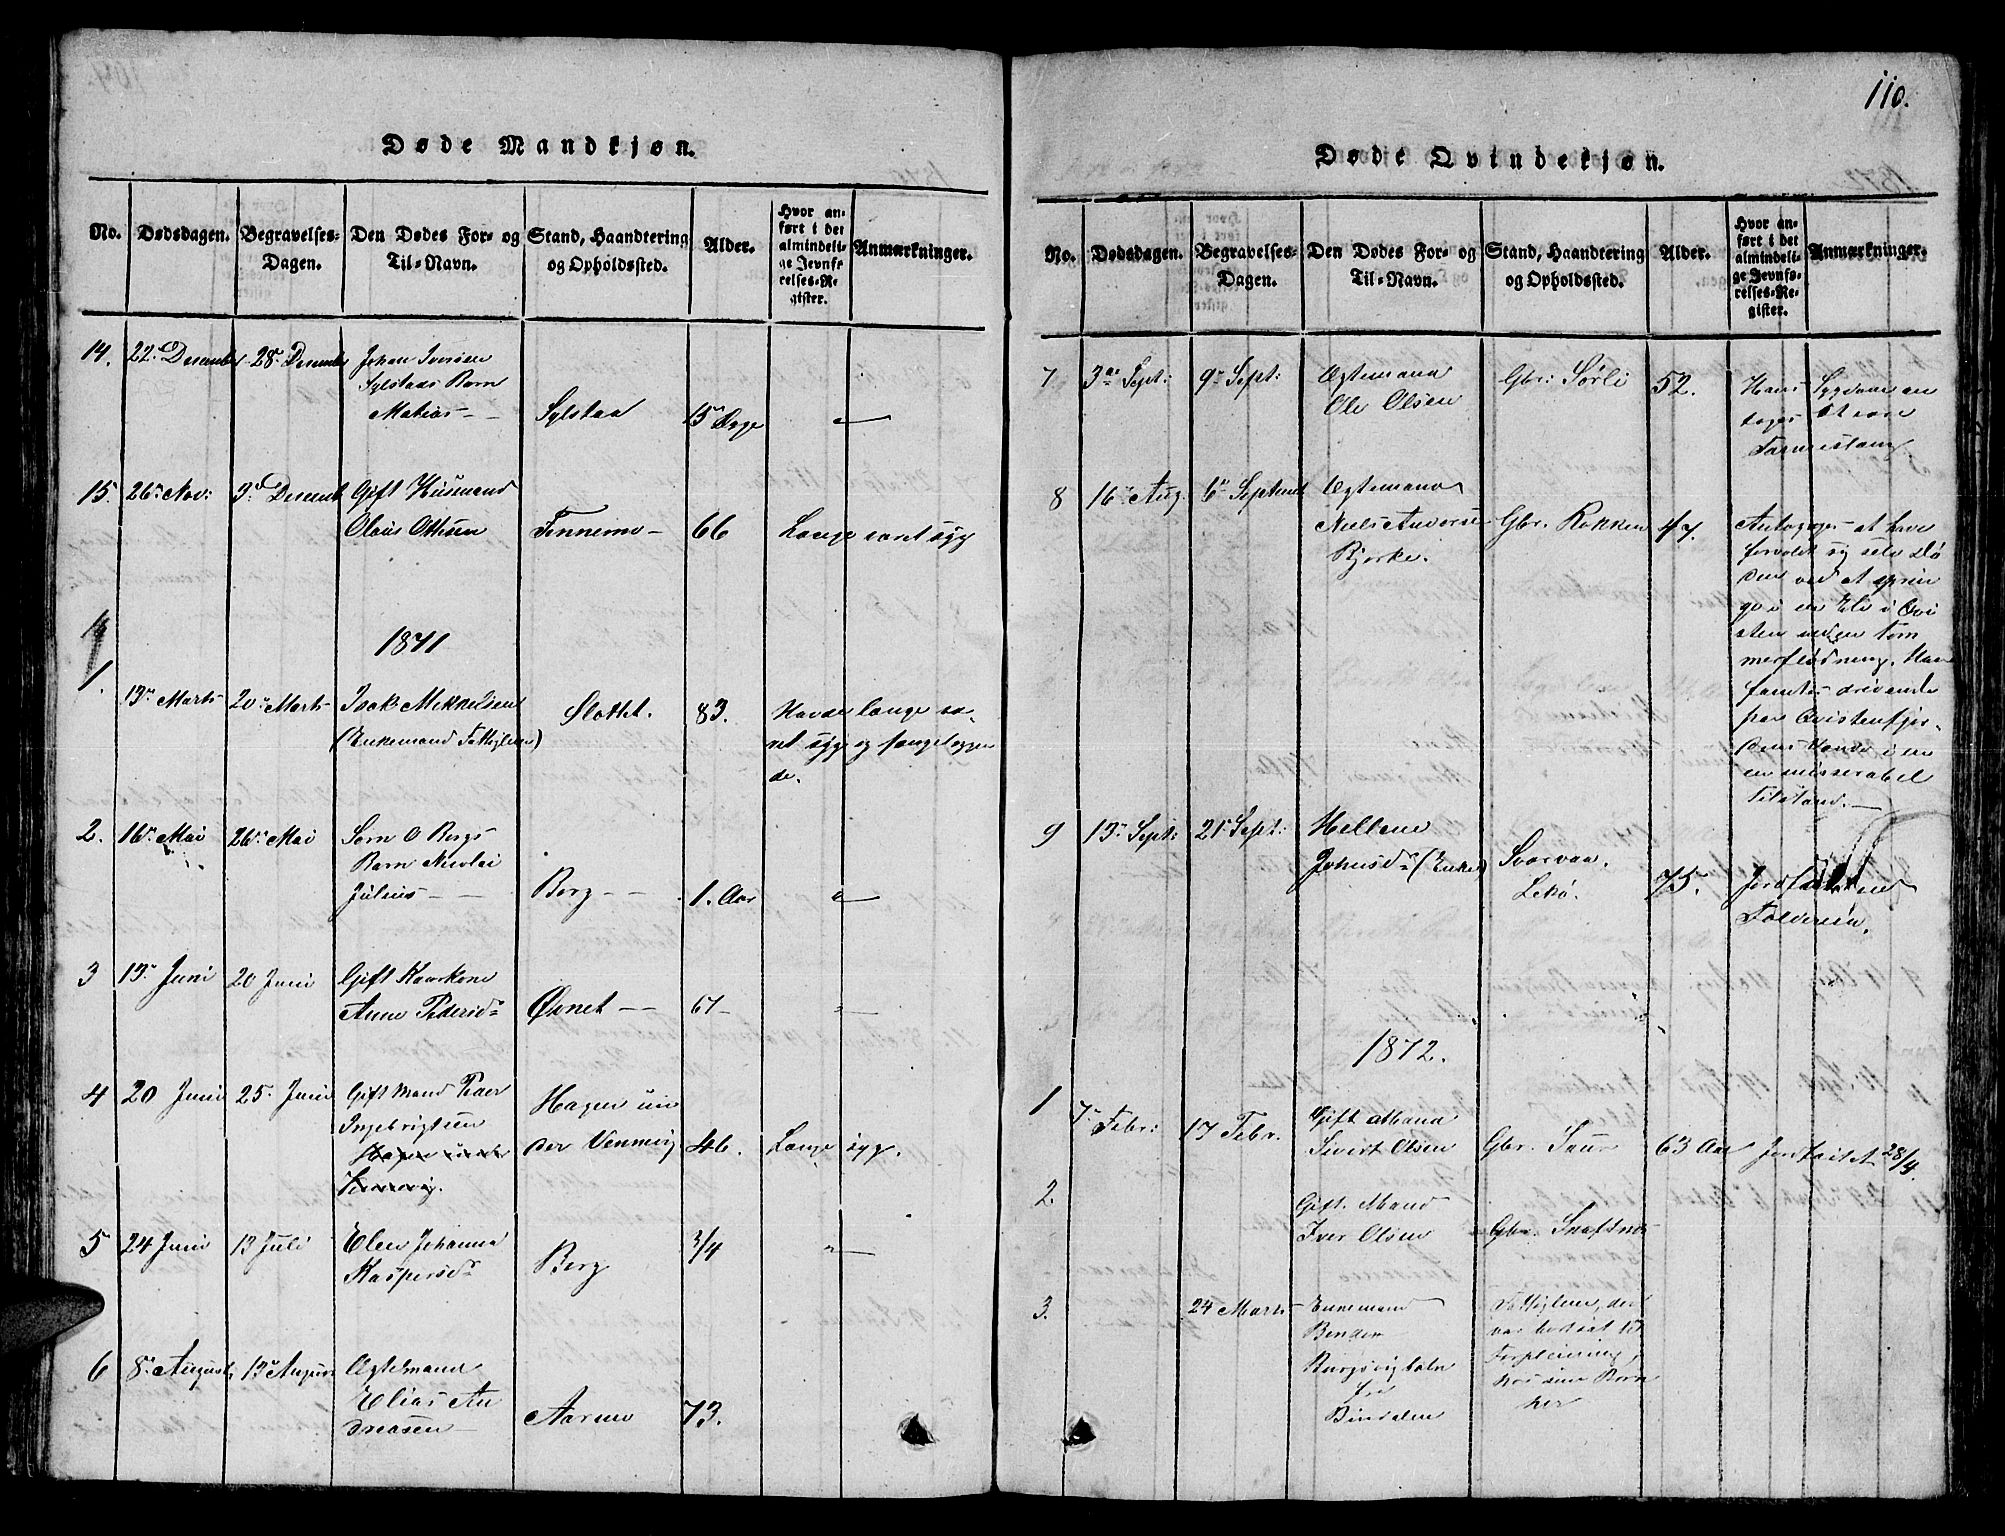 110.
Døde Mandkjøn.
No.
Dødsdagen.
Begravelses-
Dagen.
Den Dødes For- og
Til-Navn.
Stand, Haandtering
og Opholdssted.
Alder.
Hvor an-
ført i det
almindeli-
ge Jevnfø-
relses-Re-
gister.
Anmærkninger.
14. 22 Desember 28 Desember Johan Iversen
Sylstads Barn
Matias Sylstad 15 Dage "
15. 26 Nov: 3 Desemb Gift Husmand
Olaus Ottesen Tennemo 66 Lange været syg
1871
1. 13 Marts 20 Marts Isak Mikkelsen Slottet. 83. Havde lange væ-
(Enkemand Fattiglem) ret syg og sengeliggen
de.
2. 16 Mai 26 Mai Sørn O Bergs
Barn Nicolai
Julius Berg 1. Aar "
3 13 Juni 20 Juni Gift Kaarkone
Anne Pedersd Øvnet 67 "
4 20 Juni 25. Juni Gift Mand Peder
Ingebrigtsen Hagen un
der Vennevig 46. Lange syg.
5 24 Juni 13 Juli Elen Johanna
Kaspersd Berg 3/4 "
6 8 August 13 August Ægtemand
Elias An
dreasen Aarmo 73.
Døde Qvindekjøn.
No.
Dødsdagen.
Begravelses-
Dagen.
Den Dødes For- og
Til-Navn.
Stand, Haandtering
og Opholdssted.
Alder.
Hvor an-
ført i det
almindeli-
ge Jevnfø-
relses-Re-
gister.
Anmærkninger.
7 3 Sept: 9 Sept: Ægtemand
Ole Olsen Gbr: Sørli 52. Hans Sygdom an
toges at være
8 16 Aug. 6 Septemb Ægtemand
Niels Anders
Bjerke. Gbr. Kokken 47. Antages at have
forvoldt sig selv Dø
den ved at sprin
ge i en Elv i Qvi
sten under Tøm
merflødning. Han
fantes drivende
paa Qvistenfjor-
den
en misserabel
Tilstand.
9 13 Sept: 21 Sept: Hellene
Johnsd (Enke) Svarvaa,
Lekø. 75. Jordfæstet
1872.
1 7 Febr: 17 Febr. Gift Mand
Sivert Olsen Gbr. Saur 63 Aar Jordfæstet 28/4.
2. Gift Mand
Iver Olsen Gbr.
3. 24 Marts Enkemand
Fattiglem, der
var bortsat til
Forpleining
hos sine Børn
her
fra
Bindalen